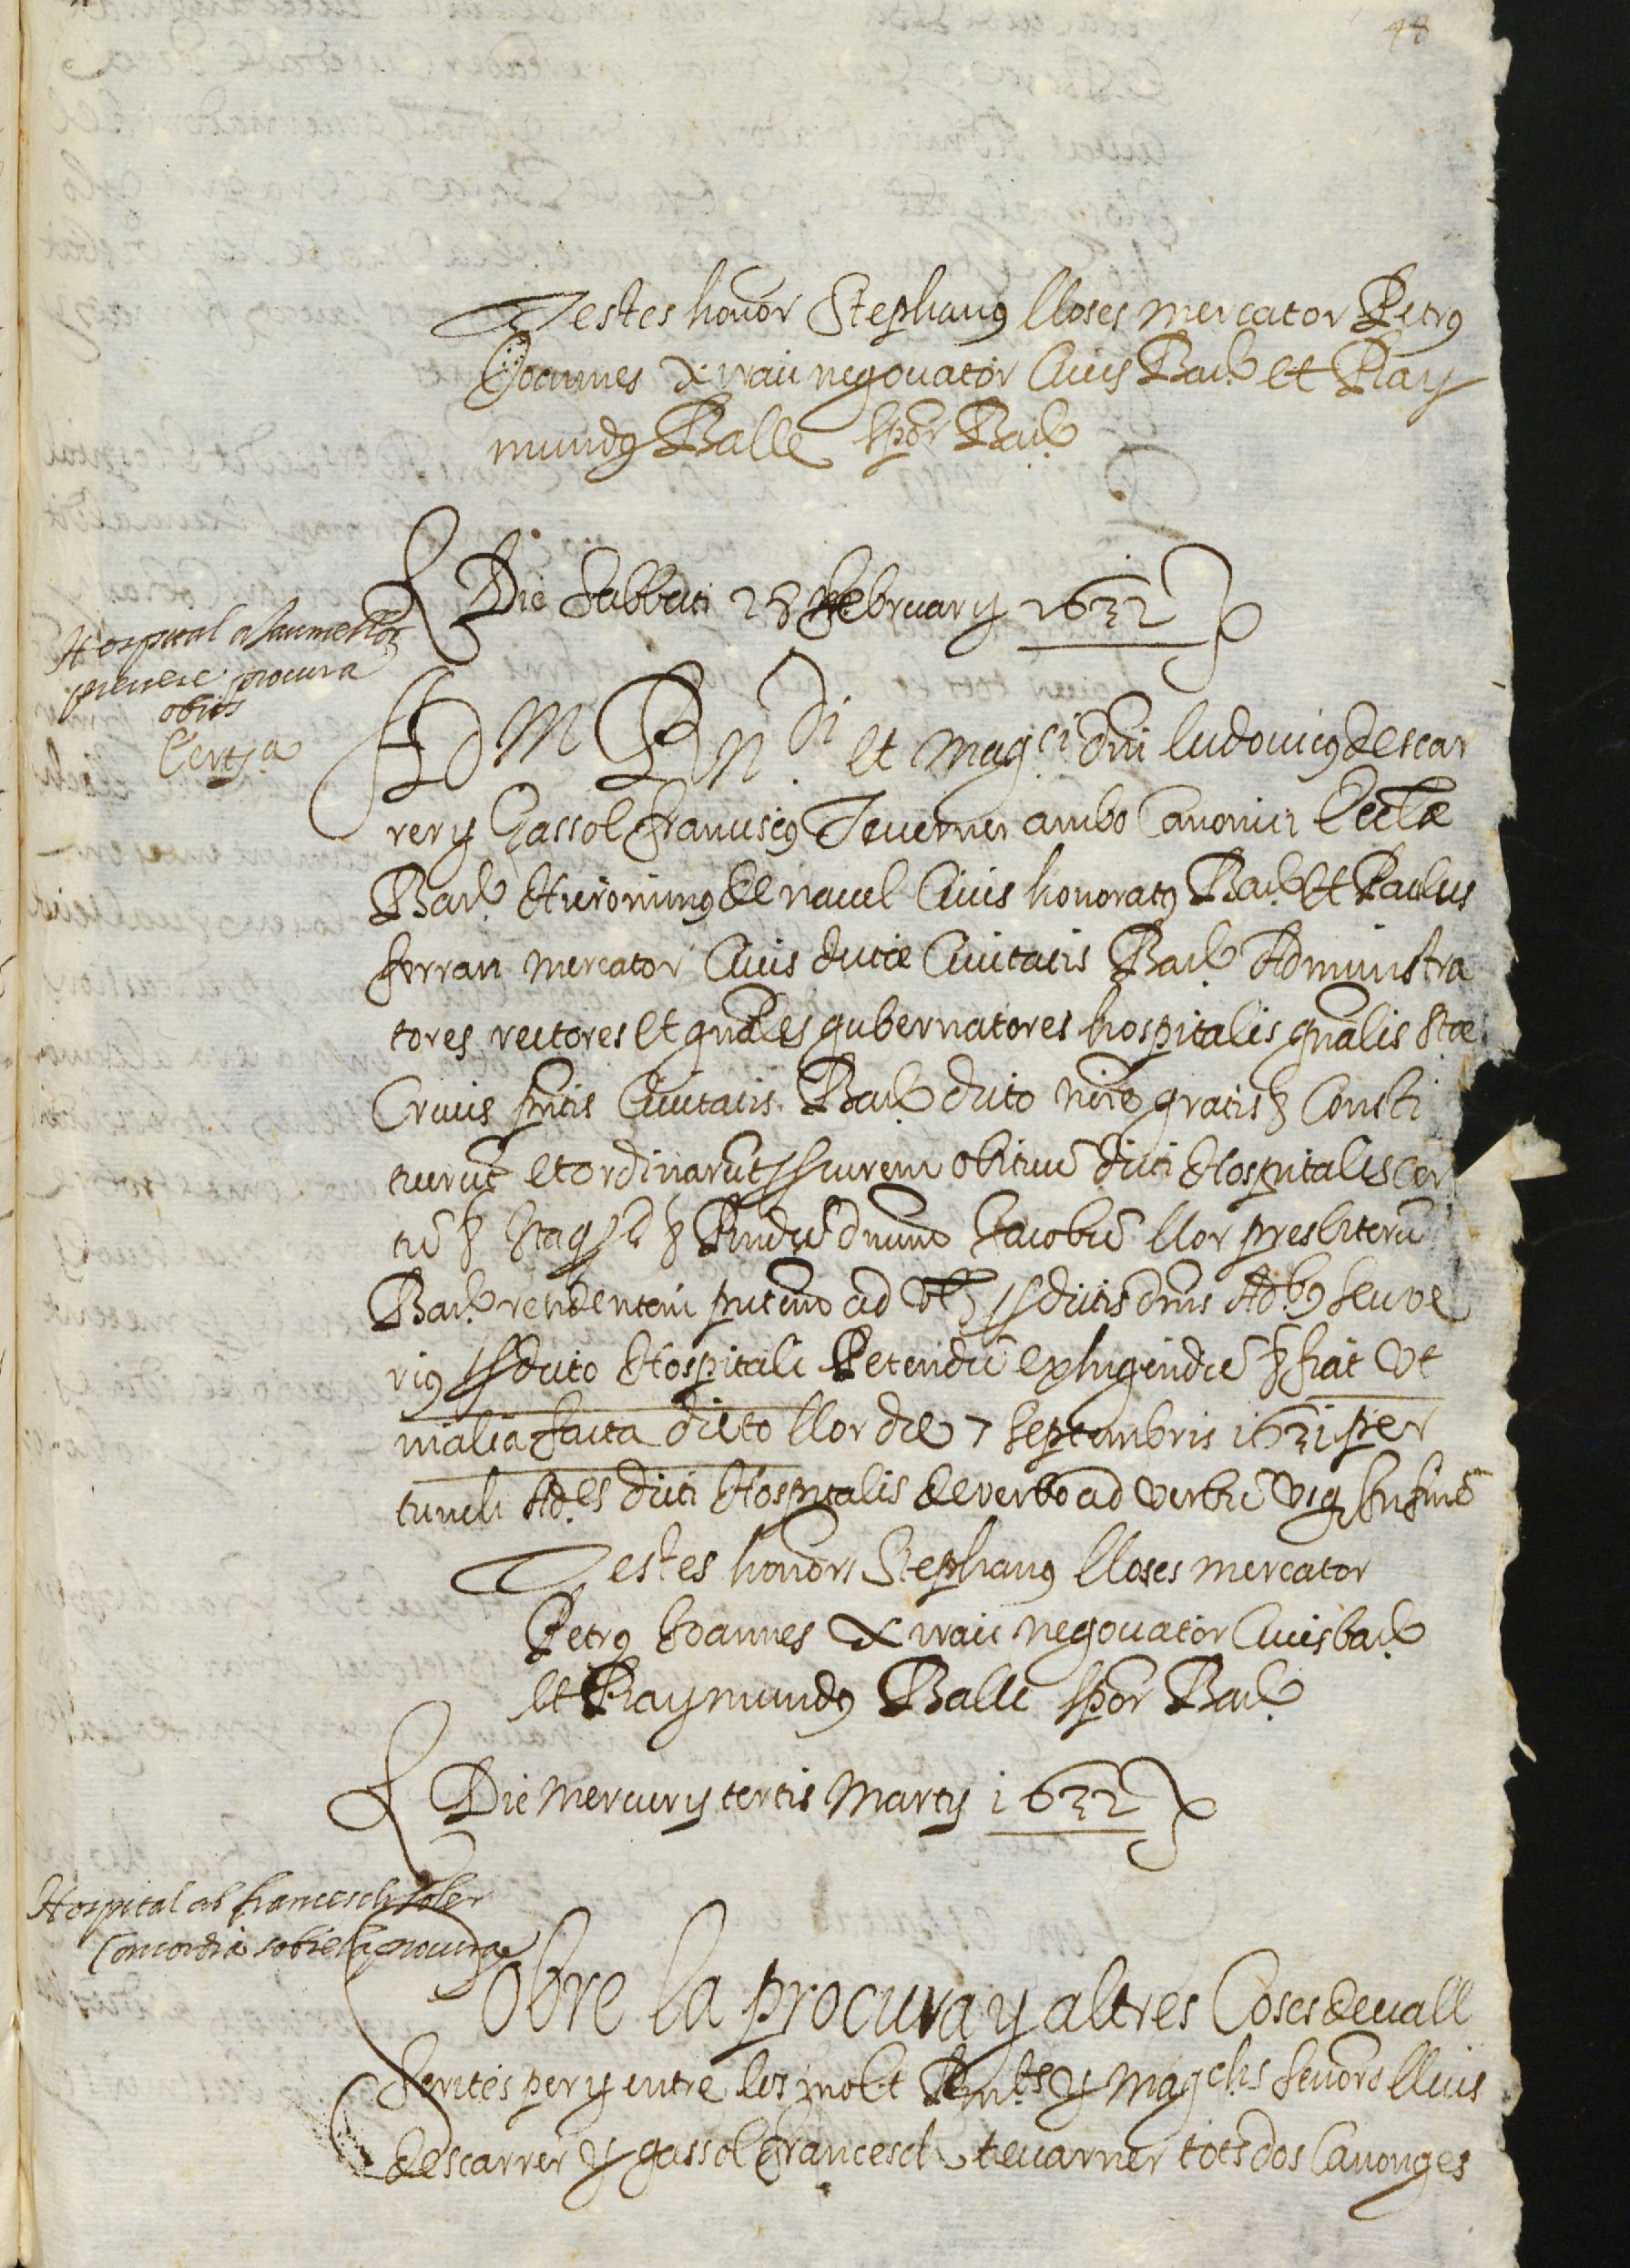 48
Testes honor Stephanus lloses mercator Petrus
Joannes negociator Civis Barᵉ et Ray
mundus Balle Spōr Barᵉ
Die Sabbati 28 February 1632
Hospital a Jaume llor
prevere procura
obits
Certs a
Ad.m R.n di et Mag.ci dni ludovicus descar
rer y Gassol Franciscus Tevemer ambo Canonici Ecclæ
Barᵉ Hieronimus de navel Civis honoratus Barᵉ et Paulus
ferran mercator Civis dictæ Civitatis Barᵉ Administra
tores rectores et gnales gubernatores hospitalis gnalis Stæ
Crucis pntis Civitatis Barᵉ dicto noīe gratis Consti
tuerut et ordinarut obituū dicti Hospitalis cer
tū Rndū dnum Jacobū llor presbiterū
Barᵉ residentem pntem ad dictis dnis Ad.bus seu ve
rius dicto Hospitali Petendū exhigendū fiat ut
in alia facta dicto llor die 7 Septembris 1631 per
tunch Ad.es dicti Hospitalis de verbo ad verbū usq in finē
Testes honors Stephanus lloses mercator
Petrus Joannes negociator Civis barᵉ
et Raymundus Balle Spōr Barᵉ
Die Mercurij tertis Martij 1632
Hospital ab francesch soler
Concordia sobre la procura
Sobre la procura y altres Coses devall
Scrites per y entre los molt Rnts y Magchs Senors lluis
descarrer y gassol Francesch tevarner tots dos Canonges